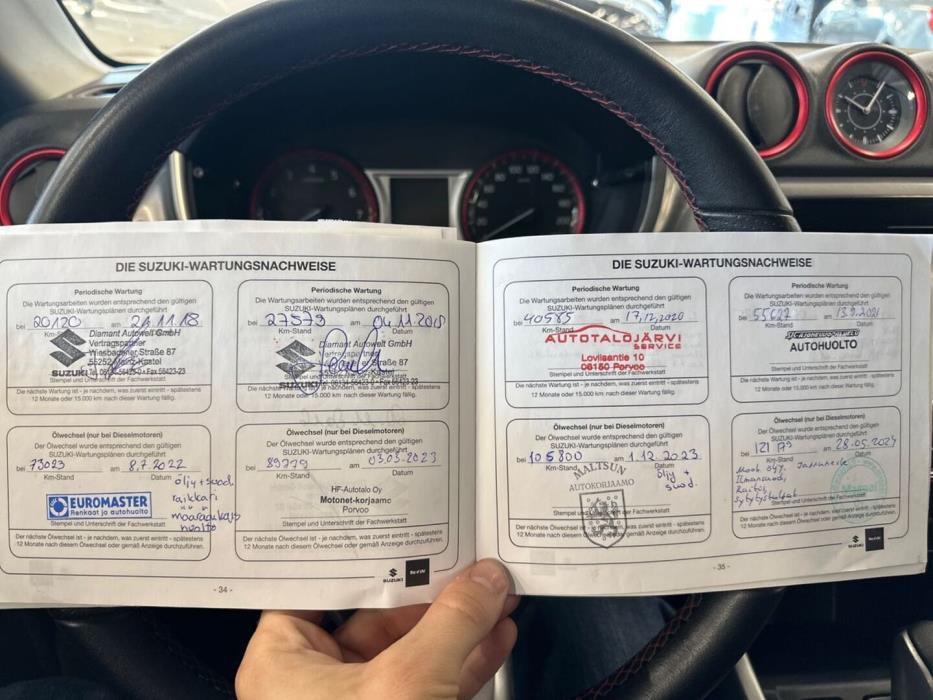 DIE SUZUKI-WARTUNGSNACHWEISE
Periodische Wartung
Die Wartungsarbeiten wurden entsprechend den gültigen
SUZUKI-Wartungsplänen durchgeführt
bei 20120 am 24.11.18
Km-Stand Datum
Diamant Autowelt GmbH
Vertragspartner
Wiesbadener Straße 87
55252 Mainz-Kastel
SUZUKI
Stempel und Unterschrift der Fachwerkstatt
Die nächste Wartung ist - je nachdem, was zuerst eintritt - spätestens
12 Monate oder 15.000 km nach dieser Wartung fällig.
Periodische Wartung
Die Wartungsarbeiten wurden entsprechend den gültigen
SUZUKI-Wartungsplänen durchgeführt
bei 27573 am 04.11.2019
Km-Stand Datum
Diamant Autowelt GmbH
Vertragspartner
Straße 87
SUZUKI
Stempel und Unterschrift der Fachwerkstatt
Die nächste Wartung ist - je nachdem, was zuerst eintritt - spätestens
12 Monate oder 15.000 km nach dieser Wartung fällig.
Ölwechsel (nur bei Dieselmotoren)
Der Ölwechsel wurde entsprechend den gültigen
SUZUKI-Wartungsplänen durchgeführt
bei 73023 am 8.7.2022
Km-Stand Datum
öljy + suod.
raikkari
määräaikais
huolto
EUROMASTER
Renkaat ja autohuolto
Stempel und Unterschrift der Fachwerkstatt
Der nächste Ölwechsel ist - je nachdem, was zuerst eintritt - spätestens
12 Monate nach diesem Ölwechsel oder gemäß Anzeige durchzuführen.
Ölwechsel (nur bei Dieselmotoren)
Der Ölwechsel wurde entsprechend den gültigen
SUZUKI-Wartungsplänen durchgeführt
bei 89779 am 03.03.2023
Km-Stand Datum
HF-Autotalo Oy
Motonet-korjaamo
Porvoo
Stempel und Unterschrift der Fachwerkstatt
Der nächste Ölwechsel ist - je nachdem, was zuerst eintritt - spätestens
12 Monate nach diesem Ölwechsel oder gemäß Anzeige durchzuführen.
SUZUKI
Way of Life!
- 34 -
DIE SUZUKI-WARTUNGSNACHWEISE
Periodische Wartung
Die Wartungsarbeiten wurden entsprechend den gültigen
SUZUKI-Wartungsplänen durchgeführt
bei 40585 am 17.12.2020
Km-Stand Datum
AUTOTALOJÄRVI
SERVICE
Loviisantie 10
06150 Porvoo
Stempel und Unterschrift der Fachwerkstatt
Die nächste Wartung ist - je nachdem, was zuerst eintritt - spätestens
12 Monate oder 15.000 km nach dieser Wartung fällig.
Periodische Wartung
Die Wartungsarbeiten wurden entsprechend den gültigen
SUZUKI-Wartungsplänen durchgeführt
bei 55627 am 13.9.2021
Km-Stand Datum
AUTOHUOLTO
Stempel und Unterschrift der Fachwerkstatt
Die nächste Wartung ist - je nachdem, was zuerst eintritt - spätestens
12 Monate oder 15.000 km nach dieser Wartung fällig.
Ölwechsel (nur bei Dieselmotoren)
Der Ölwechsel wurde entsprechend den gültigen
SUZUKI-Wartungsplänen durchgeführt
bei 105800 am 1.12.2023
Km-Stand Datum
öljy +
suod.
MALTSUN
AUTOKORJAAMO
Stempel und Unterschrift der Fachwerkstatt
Der nächste Ölwechsel ist - je nachdem, was zuerst eintritt - spätestens
12 Monate nach diesem Ölwechsel oder gemäß Anzeige durchzuführen.
Ölwechsel (nur bei Dieselmotoren)
Der Ölwechsel wurde entsprechend den gültigen
SUZUKI-Wartungsplänen durchgeführt
bei am 28.05.2024
Km-Stand Datum
öljy, Jarruneste
Ilmansuod,
Raitis,
Sytytystulpat
Stempel und Unterschrift der Fachwerkstatt
Der nächste Ölwechsel ist - je nachdem, was zuerst eintritt - spätestens
12 Monate nach diesem Ölwechsel oder gemäß Anzeige durchzuführen.
SUZUKI
Way of Life!
- 35 -